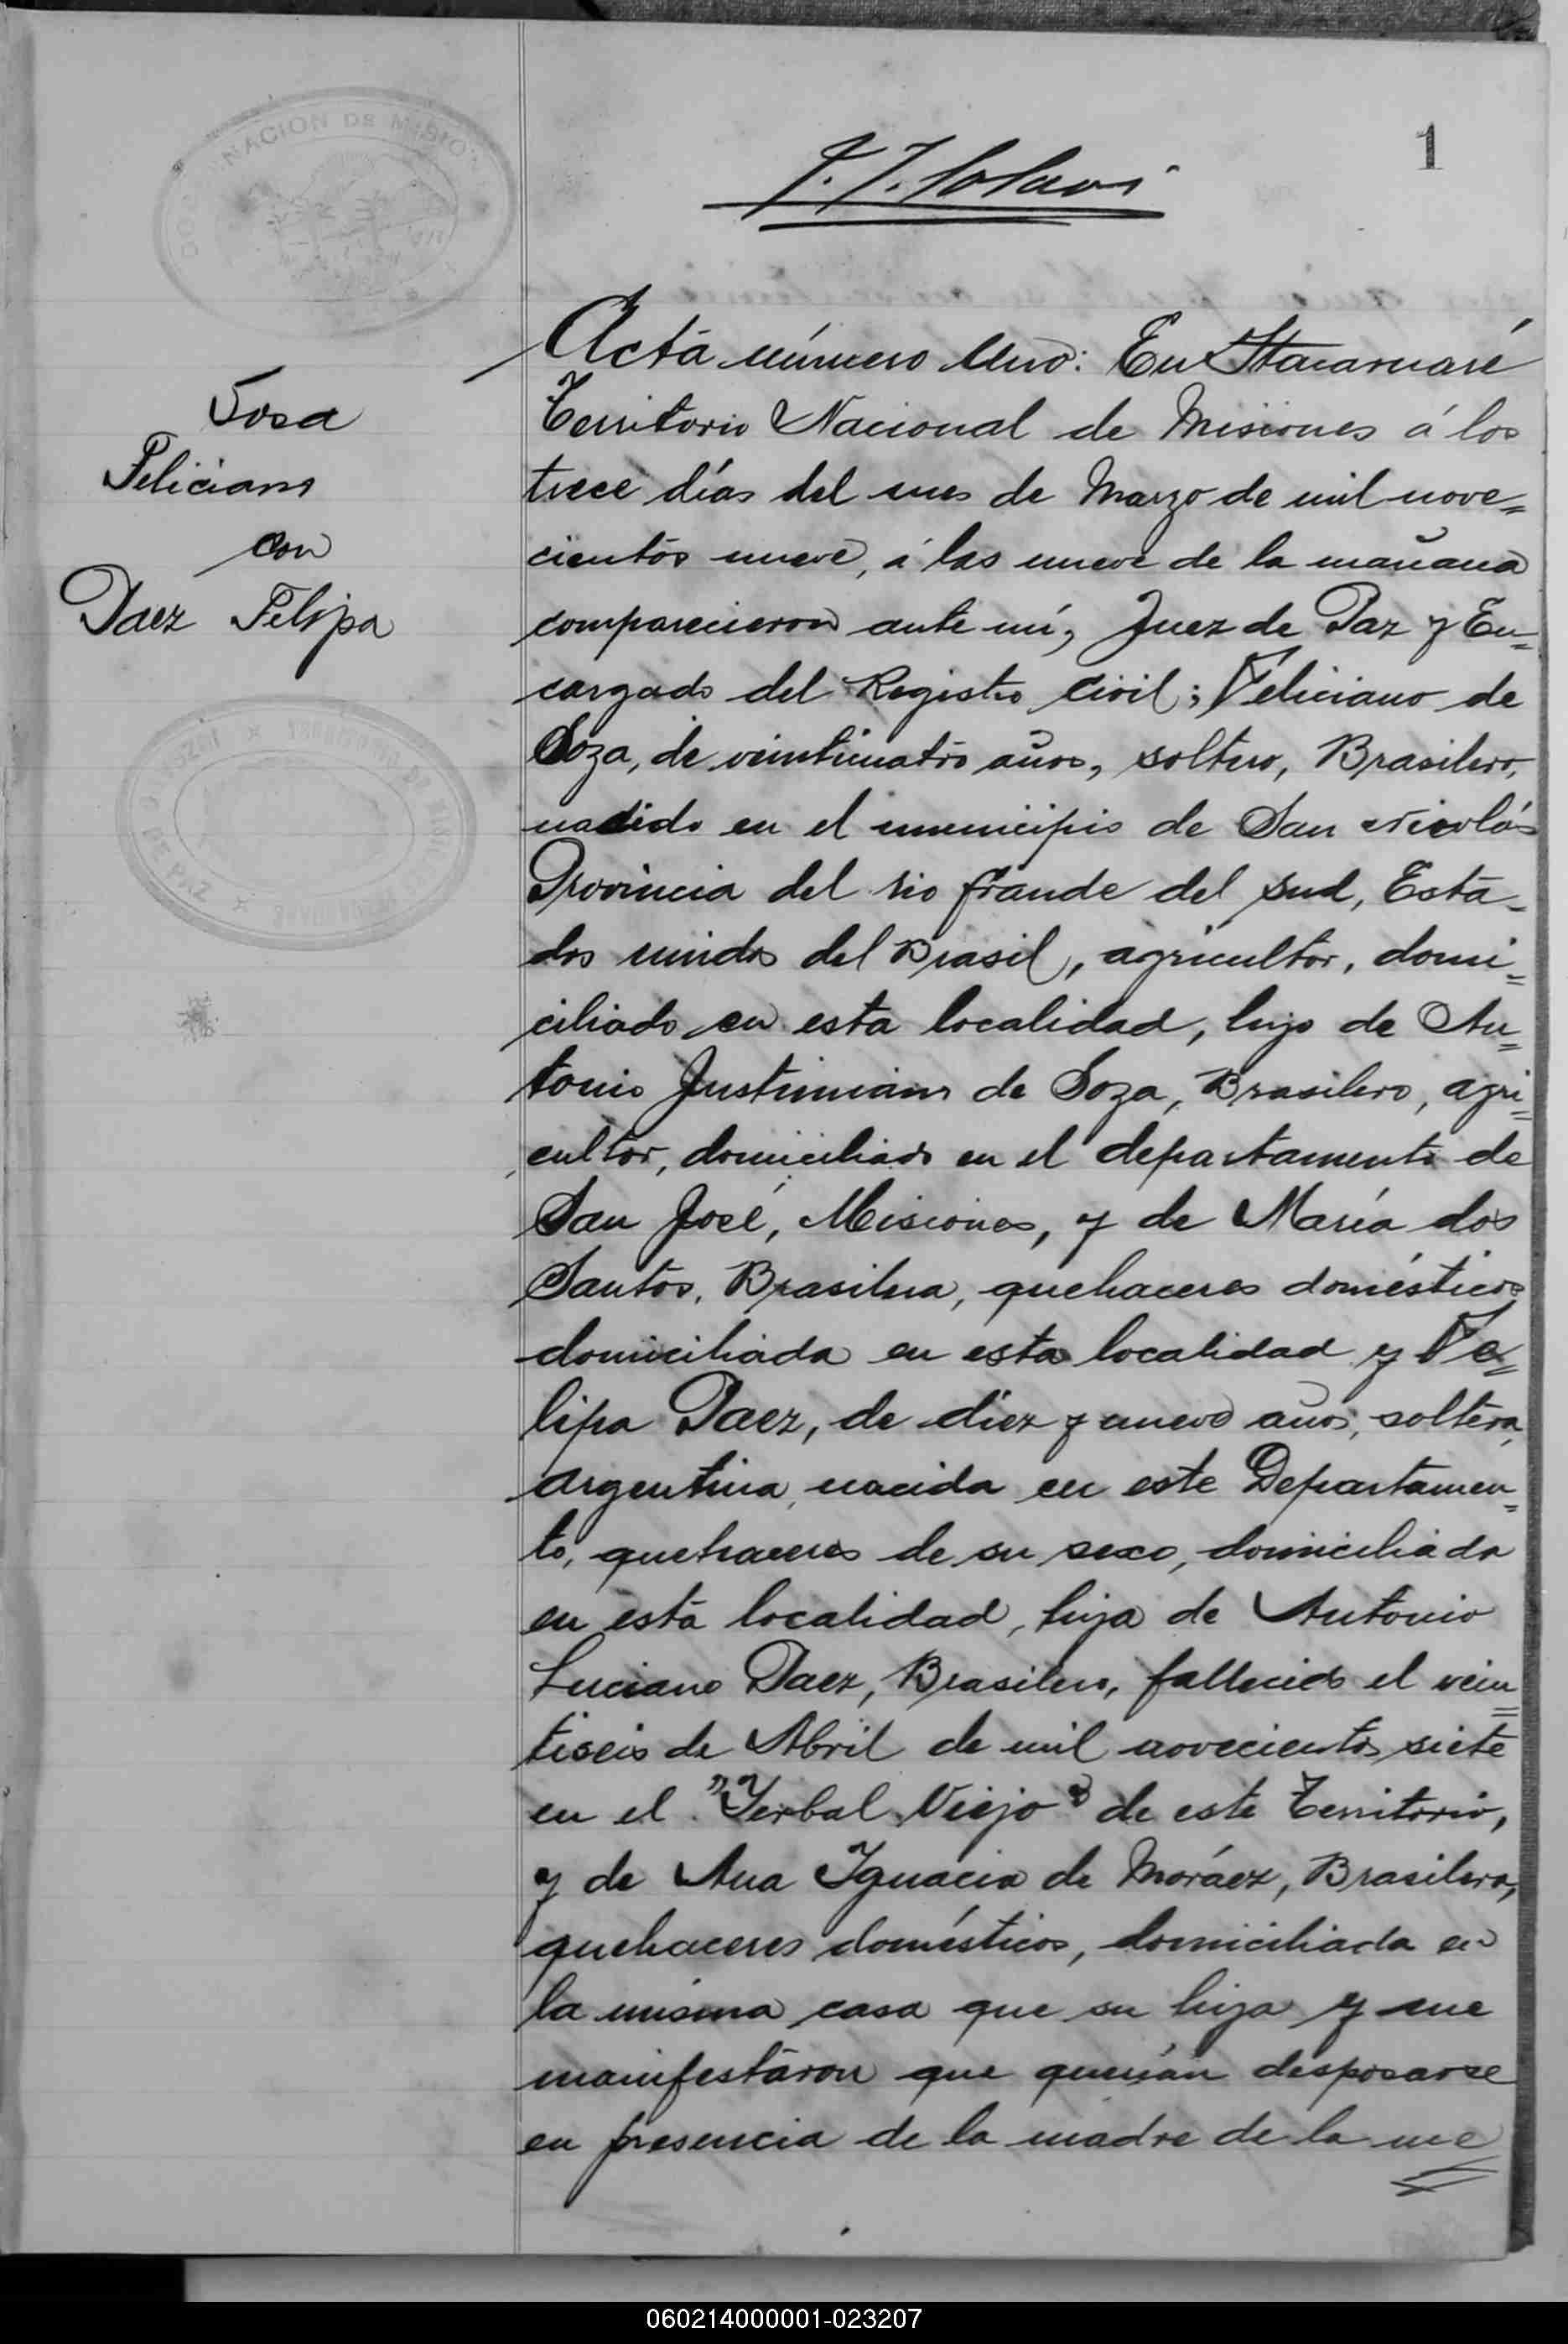 1
Sosa
Feliciano
con
Paez Felipa
Acta número Uno: En Itacaruaré
Territorio Nacional de Misiones á los
trece días del mes de Marzo de mil nove=
cientos nueve, á las nueve de la mañana
comparecieron ante mí, Juez de Paz y En=
cargado del Registro Civil; Feliciano de
Soza, de veinticuatro años, soltero, Brasilero,
nacido en el municipio de San Nicolás
Provincia del rio grande del sud, Esta-
dos unidos del Brasil, agricultor, domi=
ciliado en esta localidad, hijo de An=
tonio Justiniano de Soza, Brasilero, agri=
cultor, domiciliado en el departamento de
San José, Misiones, y de María dos
Santos, Brasilera, quehaceres domésticos
domiciliada en esta localidad y Fe=
lipa Paez, de diez y nueve años, soltera,
argentina, nacida en este Departamen=
to, quehaceres de su sexo, domiciliada
en esta localidad, hija de Antonio
Luciano Paez, Brasilero, fallecido el vein=
tiseis de Abril de mil novecientos siete
en el "Yerbal Viejo" de este Territorio,
y de Ana Ignacia de Moráez, Brasilera,
quehaceres domésticos, domiciliada en
la misma casa que su hija y me
manifestaron que querían desposarse
en presencia de la madre de la me=
060214000001-023207